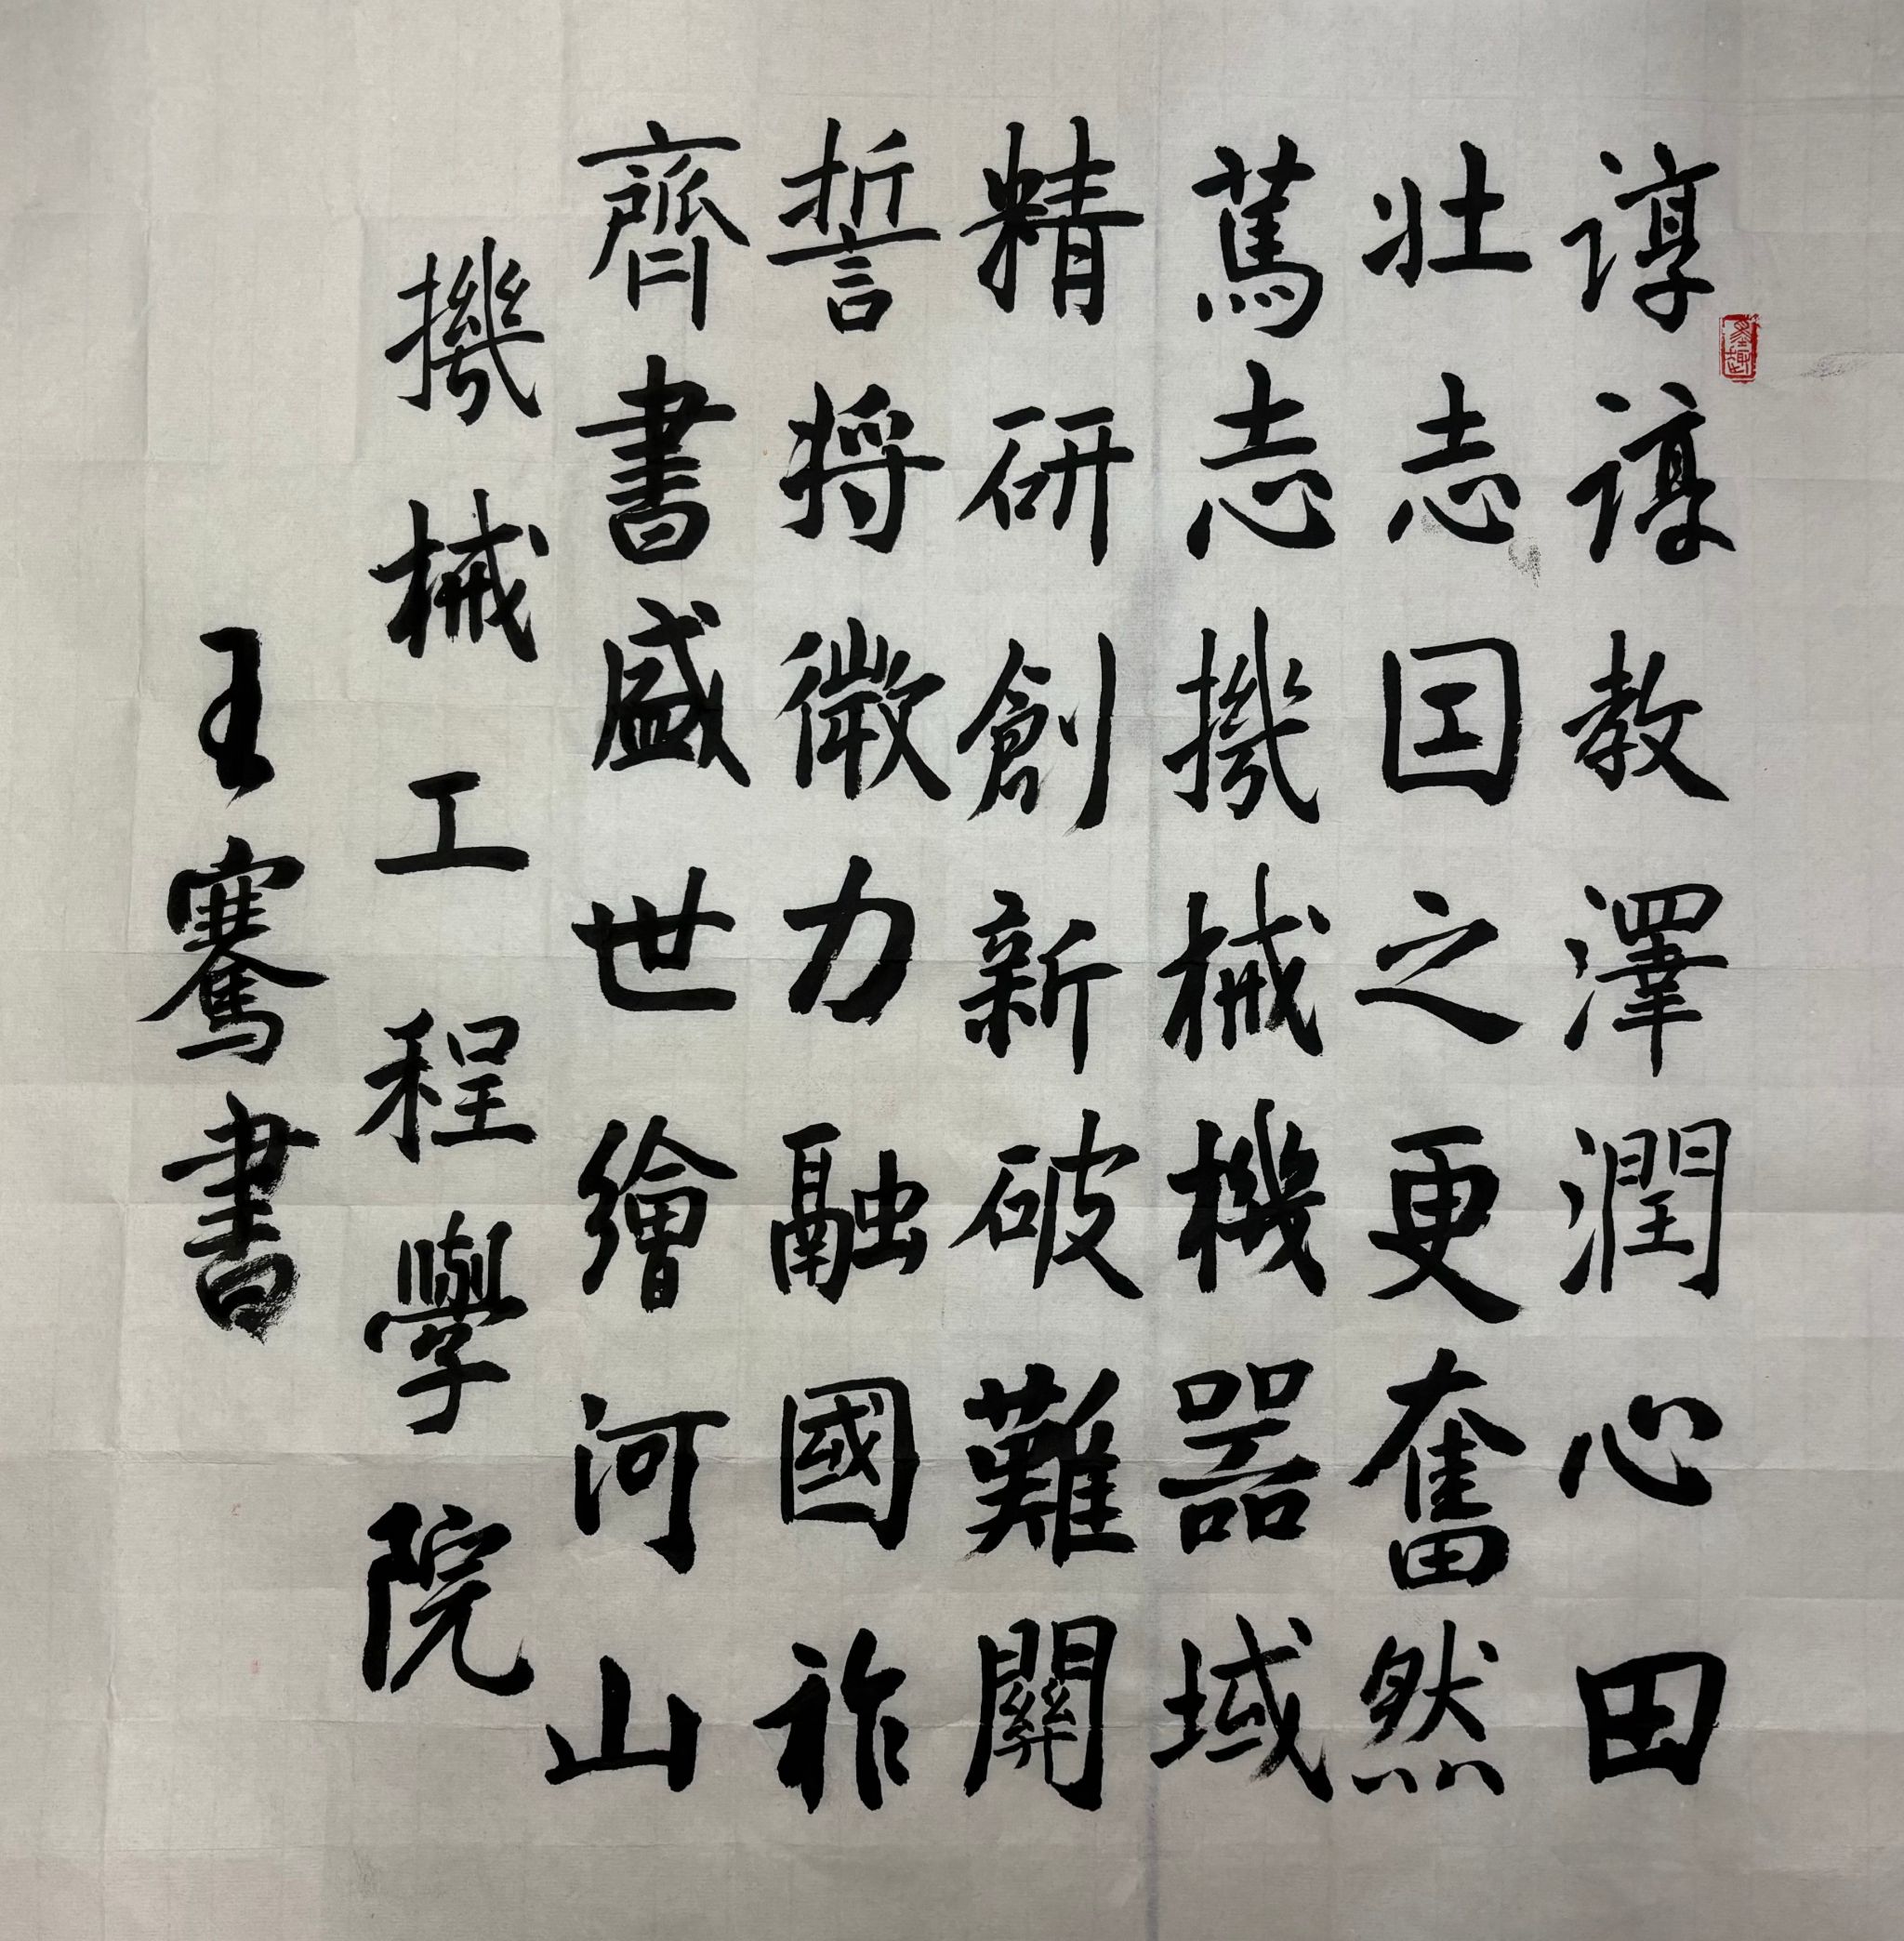 諄諄教澤潤心田
壯志囯之更奮然
篤志機械機器域
精研創新破難關
誓將微力融國祚
齊書盛世繪河山
機械工程學院
王騫書